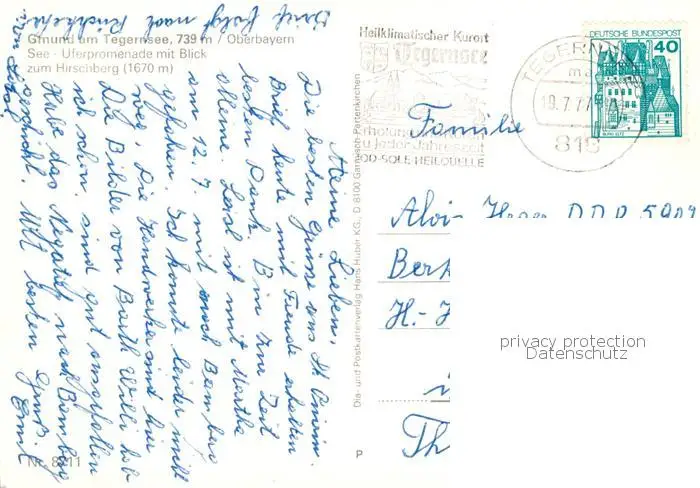 Brief folgt nach Rückkehr
von Lisa.
Gmund am Tegernsee, 739 m / Oberbayern
See - Uferpromenade mit Blick
zum Hirschberg (1670 m)
Meine Lieben,
Die besten Grüsse aus St Quirin.
Brief heute mit Freude erhalten
besten Dank. Bin zur Zeit
alleine. Lisl ist mit Martha
am 12.7. mit nach Bamberg
gefahren. Ich konnte leider nicht
weg. Die Handwerker sind hier
Die Bilder von Barth Willi hab
ich schon, sind gut ausgefallen
Habe das Negativ nach Bamberg
geschickt. Mit besten Gruß.
Emil
Nr. 8211
Dia- und Postkartenverlag Hans Huber KG., D 8100 Garmisch-Partenkirchen
P
Heilklimatischer Kurort
Tegernsee
Erholung
zu jeder Jahreszeit
JOD-SOLE HEILQUELLE
TEGERNSEE
ma
19.7.77
818
DEUTSCHE BUNDESPOST
40
BURG ELTZ
Familie
Alois DDR
H.-
Th
privacy protection
Datenschutz